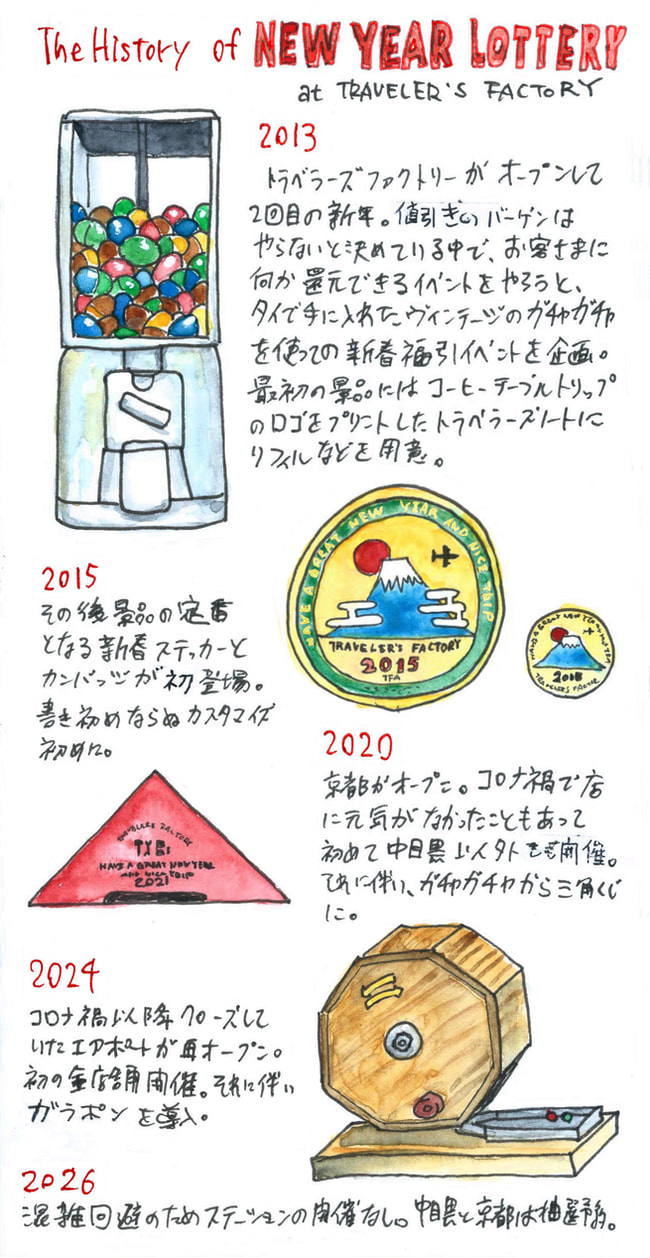 The History of NEW YEAR LOTTERY
at TRAVELER'S FACTORY
2013
トラベラーズファクトリーがオープンして
2回目の新年。値引きのバーゲンは
やらないと決めている中で、お客さまに
何か還元できるイベントをやろうと、
タイで手に入れたヴィンテージのガチャガチャ
を使っての新春福引イベントを企画。
最初の景品にはコーヒーテーブルトリップ
のロゴをプリントしたトラベラーズノートに
リフィルなどを用意。
HAVE A GREAT NEW YEAR AND NICE TRIP
TRAVELER'S FACTORY
2015
TFA
2015
TRAVELER'S FACTORY
2015
その後景品の定番
となる新春ステッカーと
カンバッヂが初登場。
書き初めならぬカスタマイズ
初めに。
TRAVELERS FACTORY
HAVE A GREAT NEW YEAR
AND NICE TRIP
2021
2020
京都がオープン。コロナ禍で店
に元気がなかったこともあって
初めて中目黒以外でも開催。
それに伴い、ガチャガチャから三角くじ
に。
2024
コロナ禍以降クローズして
いたエアポートが再オープン。
初の全店舗開催。それに伴い
ガラポンを導入。
2026
混雑回避のためステーションの開催なし。中目黒と京都は抽選予約。